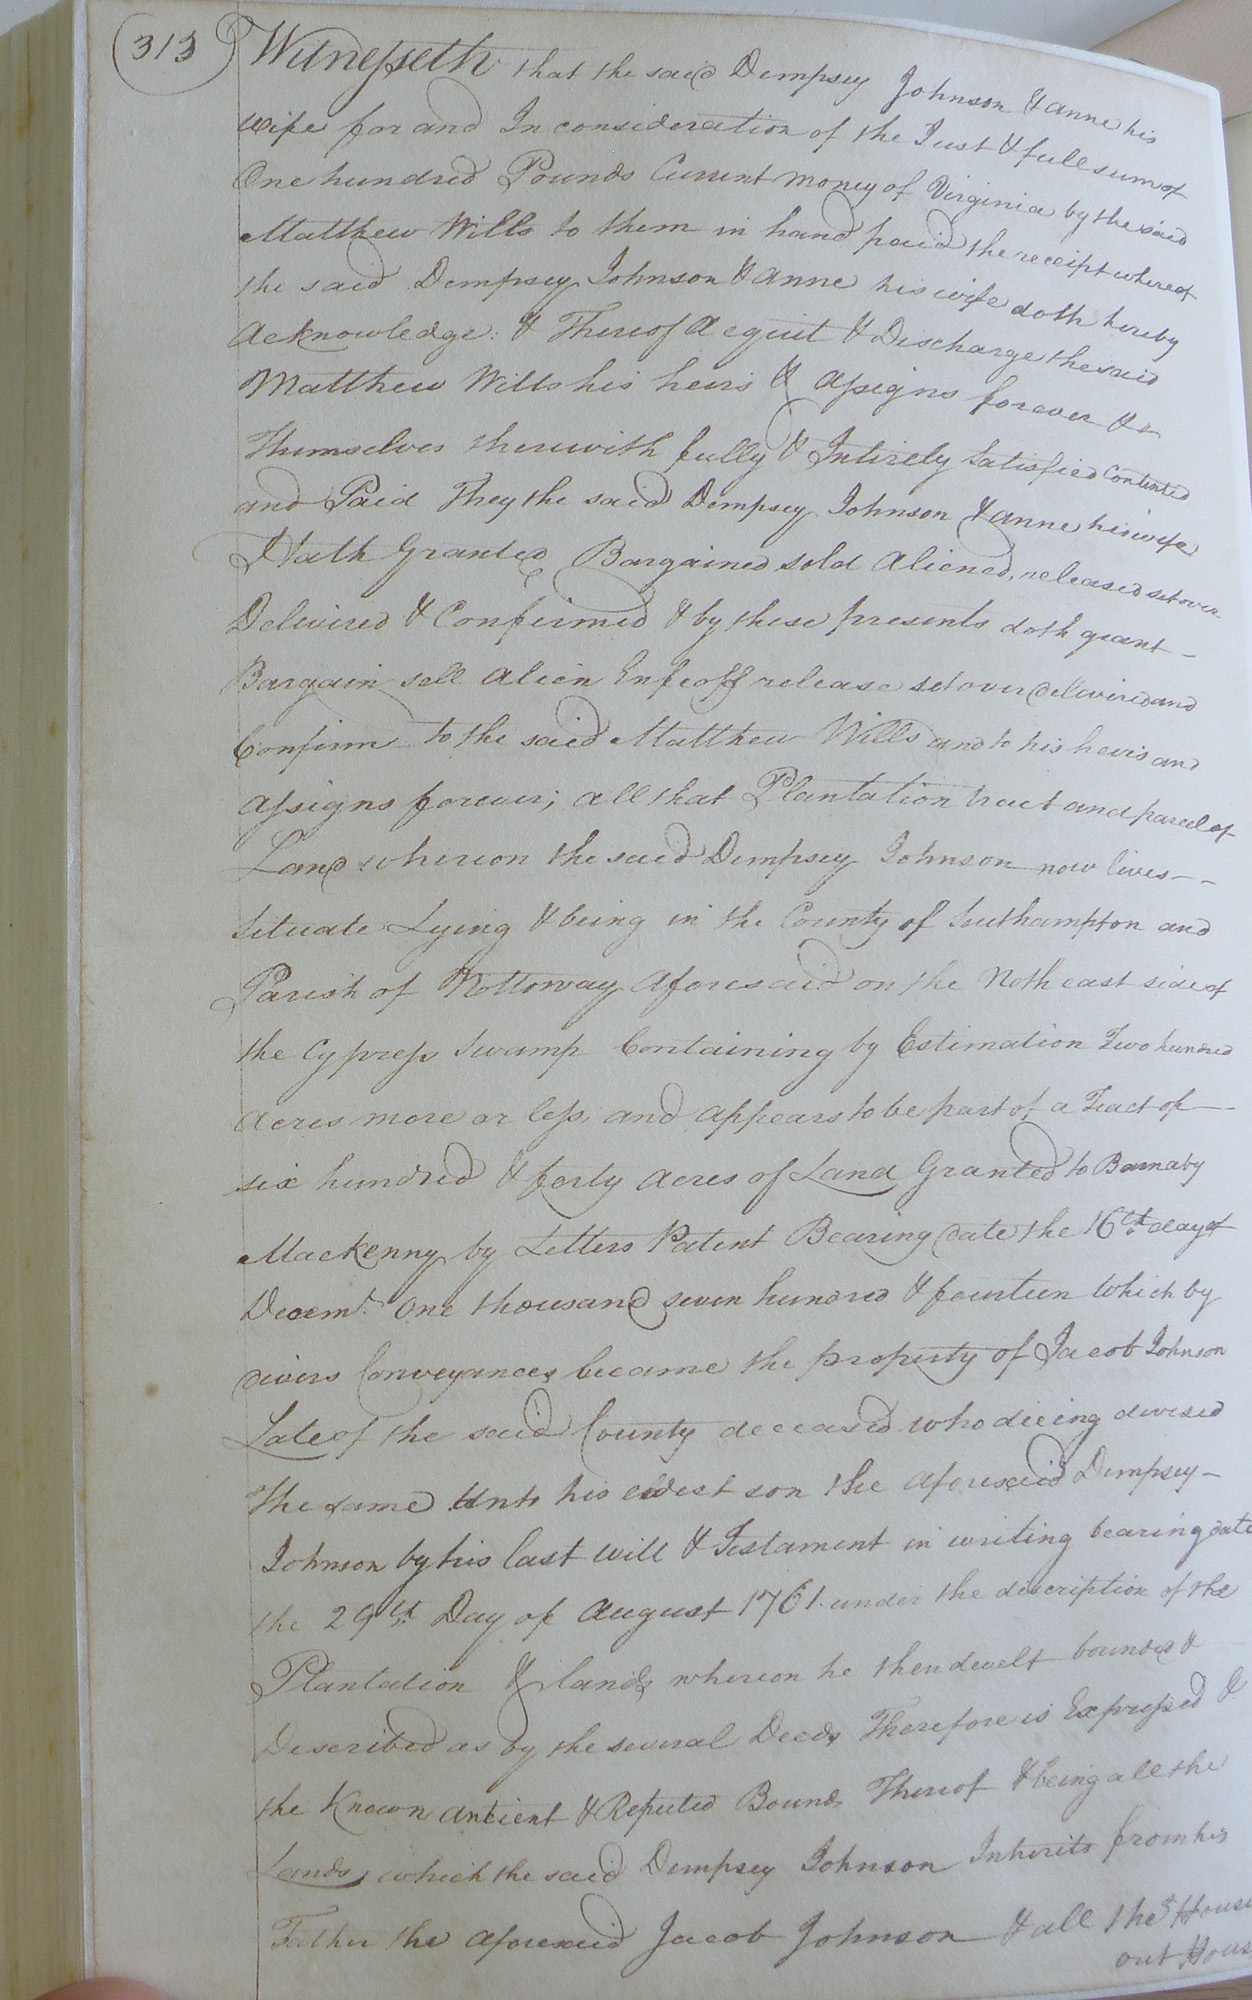 313
Witnesseth that the said Dempsey Johnson & anne his
wife for and In consideration of the Just & full sum of
One hundred Pounds Current money of Virginia by the said
Matthew Wills to them in hand paid the receipt whereof
the said Dempsey Johnson & anne his wife doth hereby
acknowledge: & Thereof acquit & Discharge the said
Matthew Wills his heirs & assigns forever &
Themselves therewith fully & Intirely Satisfied Contented
and Paid They the said Dempsey Johnson & anne his wife
Hath Granted Bargained sold aliened, released setover
Delivired & Confirmed & by these presents doth grant –
Bargain sell alien Enfeoff release setover delivired and
Confirm to the said Matthew Wills and to his heirs and
assigns forever; all that Plantation tract and parcel of
Land whereon the said Dempsey Johnson now lives – –
Situate Lying & being in the County of Southampton and
Parish of Nottoway aforesaid on the Noth east side of
the Cypress Swamp Containing by Estimation Two hundred
acres more or less, and appears to be part of a Tract of –
six hundred & forty acres of Land Granted to Barnaby
Mackenny by Letters Patent Bearing date the 16th day of
Decemr. One thousand seven hundred & fourteen Which by
divers Conveyances became the property of Jacob Johnson
Late of the said County deceased who dieing devised
the same Unto his eldest son the aforesaid Dempsey –
Johnson by his last will & Testament in writing bearing date
the 29th Day of August 1761. under the description of the
Plantation & lands whereon he then dwelt bounded &
Described as by the several Deeds Therefore is Expressed &
the Known antient & Reputed Bounds Thereof & being all the
Lands, which the said Dempsey Johnson Inherits from his
Father the aforesaid Jacob Johnson & all the House
out Hous